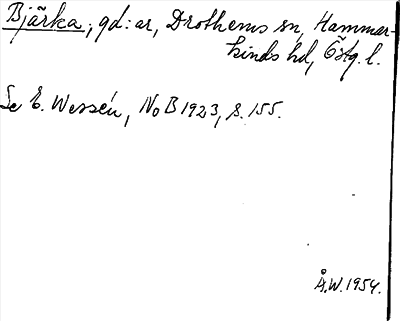 Bjärka, gd:ar, Drothems sn, Hammar-
kinds hd, Östg. l.
Se E. Wessén, NoB 1923, s. 155.
Å.W. 1954.